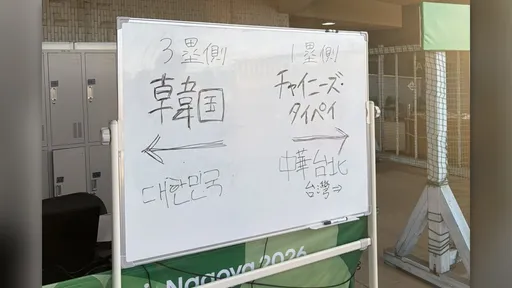 3塁側
韓国
←
대한민국
1塁側
チャイニーズ・
タイペイ
→
中華台北
台湾⇒
Nagoya 2026